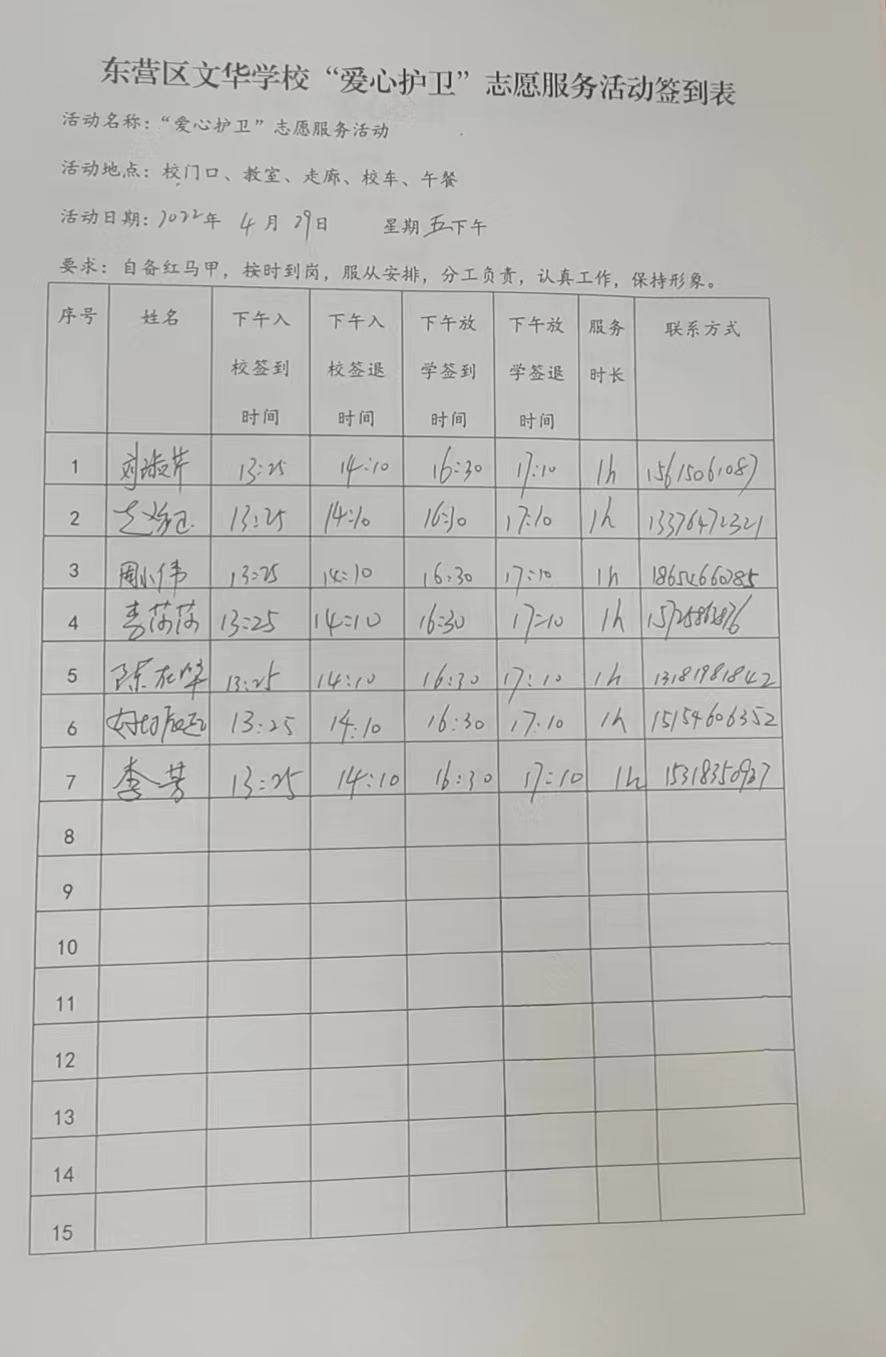 东营区文华学校“爱心护卫”志愿服务活动签到表
活动名称：“爱心护卫”志愿服务活动
活动地点：校门口、教室、走廊、校车、午餐
活动日期：2022年 4月 29日 星期五下午
要求：自备红马甲，按时到岗，服从安排，分工负责，认真工作，保持形象。
序号 姓名 下午入 下午入 下午放 下午放 服务 联系方式
校签到 校签退 学签到 学签退 时长
时间 时间 时间 时间
1 刘淑芹 13:25 14:10 16:30 17:10 1h 15615061087
2 13:25 14:10 16:30 17:10 1h 13376472321
3 周小伟 13:25 14:10 16:30 17:10 1h 18654660285
4 李莎莎 13:25 14:10 16:30 17:10 1h
5 13:25 14:10 16:30 17:10 1h 13181981842
6 13:25 14:10 16:30 17:10 1h 15154606352
7 李芳 13:25 14:10 16:30 17:10 1h 15318350927
8
9
10
11
12
13
14
15